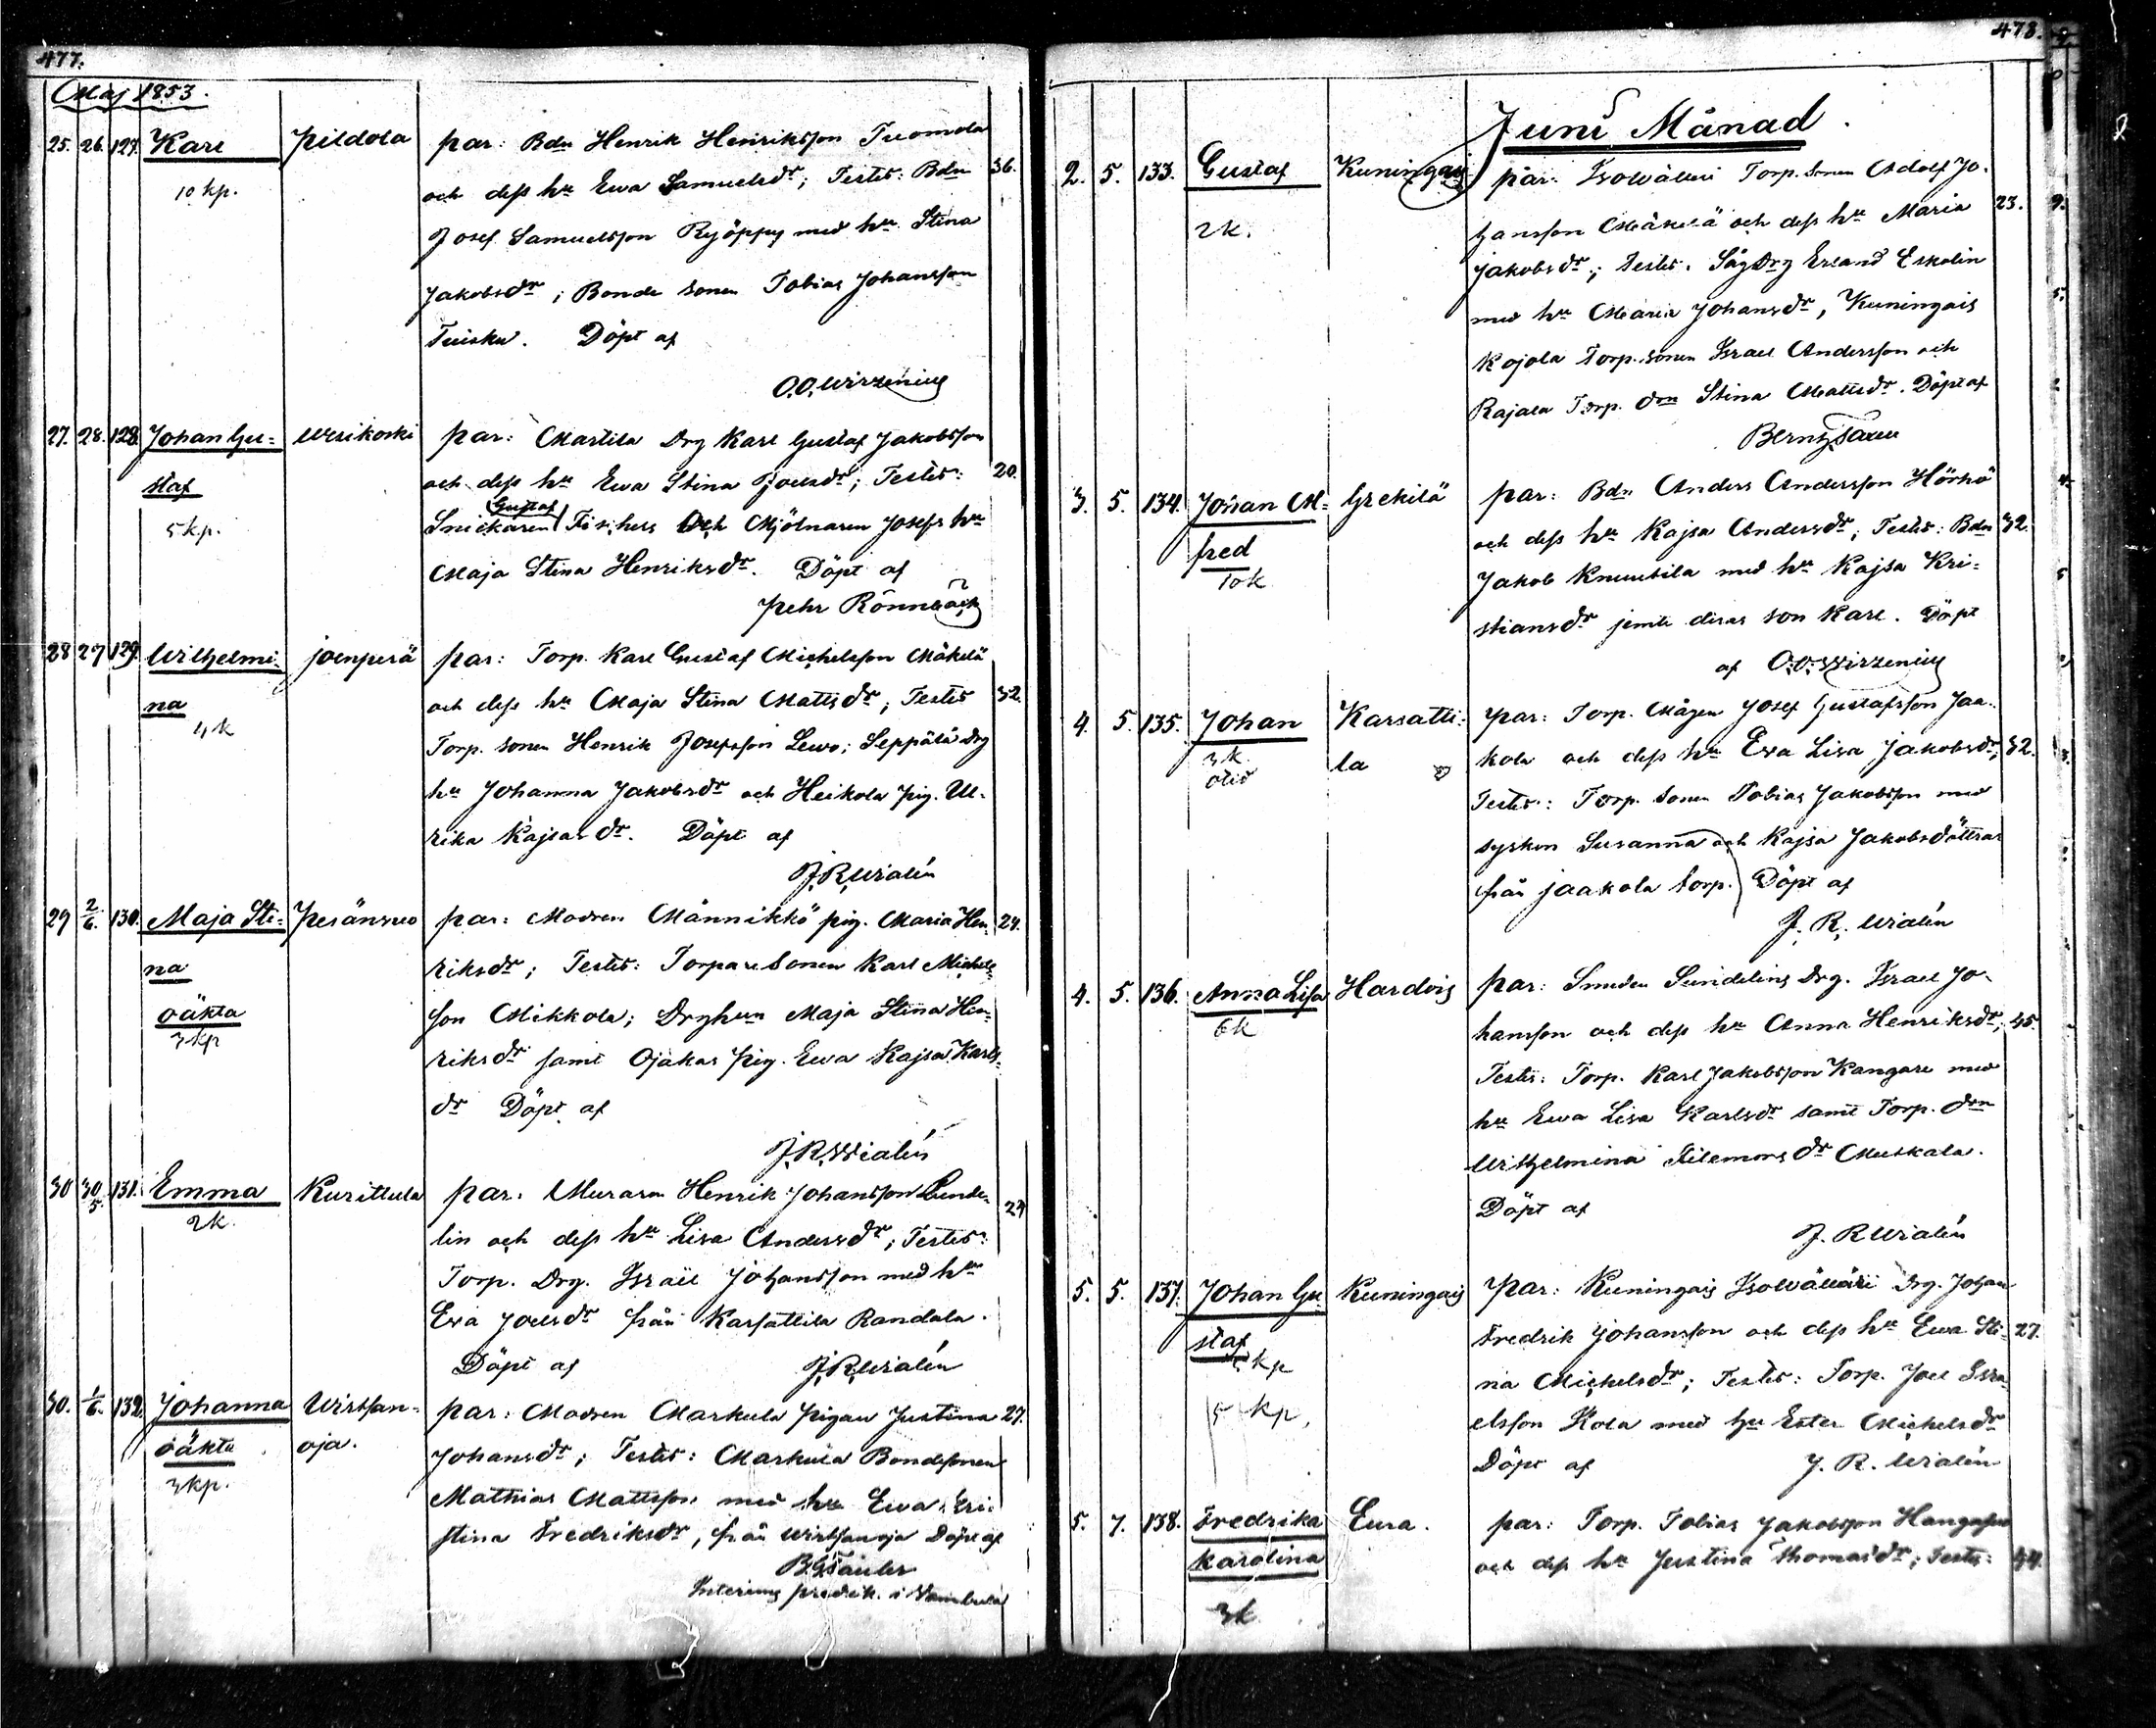 477.
Maj 1853.
25. 26. 127. Karl Pildola par: Bdn Henrik Henriksson Tuomola
10 kp. och dess hu Ewa Samuelsdr; Testes: Bdn 36.
Josef Samuelsson Ryöppy med hu Stina
Jakobsdr; Bonde sonen Tobias Johansson
Tuisku. Döpt af
O.O. Wirzenius
27. 28. 128. Johan Gu= Wesikoski par: Martila Drg Karl Gustaf Jakobsson
staf och dess hu Ewa Stina Joelsdr; Testes: 20.
Gustaf
5 kp. Snickaren Fischers och Mjölnaren Josefs hu
Maja Stina Henriksdr. Döpt af
Pehr Rönnbäck
28 27 129. Wilhelmi= Joenperä par: Torp. Karl Gustaf Michelsson Mäkelä
na och dess hu Maja Stina Mattsdr; Testes 32.
4 k Torp. sonen Henrik Josefsson Lewo; Seppälä Drg
hu Johanna Jakobsdr och Heikola pig. Ul=
rika Kajsasdr. Döpt af
J. R. Wialén
29 2/6. 130. Maja Sti= Pesänsuo par: Modren Männikkö pig. Maria Hen= 24.
na riksdr; Testes: Torpare sonen Karl Michels
oäkta son Mikkola; Drghun Maja Stina Hen=
3 kp riksdr samt Ojakas pig. Ewa Kajsa Karls=
dr Döpt af
J. R. Wialén
30 30/5. 131. Emma Kurittula par: Muraren Henrik Johansson Lunde= 24
2 k. lin och dess hu Lisa Andersdr; Testes:
Torp. Drg. Israel Johansson med hu
Eva Joelsdr från Karsattila Randala.
Döpt af J. R. Wialén
30. 1/6. 132. Johanna Wirtsan= par: Modren Markula Pigan Justina 27.
oäkta oja. Johansdr; Testes: Markula Bondesonen
3 kp. Mathias Mattsson med hu Ewa Kri=
stina Fredriksdr, från Wirtsanoja Döpt af
Interims predik. i Wambula
478.
Juni Månad.
2. 5. 133. Gustaf Kuningais par: Isowälleri Torp. sonen Adolf Jo=
2 k. hansson Mäkelä och dess hu Maria 23.
Jakobsdr; Testes: Erland Eskolin
med hu Maria Johansdr, Kuningais
Kojola Torp. sonen Israel Andersson och
Rajala Torp. drn Stina Mattsdr. Döpt af
3. 5. 134. Johan M= Grekilä par: Bdn Anders Andersson Hörkö
fred och dess hu Kajsa Andersdr; Testes: Bdn 32.
10 k Jakob Knuutila med hu Kajsa Kri=
stiansdr jemte deras son Karl. Döpt
af O.O. Wirzenius
4. 5. 135. Johan Karsatti= par: Torp. Mågen Josef Gustafsson Jaa=
3 k. la kola och dess hu Eva Lisa Jakobsdr; 32.
Testes: Torp. sonen Tobias Jakobsson med
syskon Susanna och Kajsa Jakobsdöttrar
från Jaakola torp. Döpt af
J. R. Wialén
4. 5. 136. Anna Lisa Hardvis par: Smeden Sundelins Drg. Israel Jo=
6 k hansson och dess hu Anna Henriksdr; 45.
Testes: Torp. Karl Jakobsson Kangare med
hu Ewa Lisa Karlsdr samt Torp. drn
Wilhelmina Filemonsdr Muskala.
Döpt af
J. R. Wialén
5. 5. 137. Johan Gu= Kuningais par: Kuningais Isowälläri Drg. Johan
staf Fredrik Johansson och dess hu Ewa Sti= 27.
5 kp na Michelsdr; Testes: Torp. Joel Isra=
5 kp. elsson Kola med hu Ester Michelsdr
Döpt af J. R. Wialén
5. 7. 138. Fredrika Eura. par: Torp. Tobias Jakobsson
Karolina och dess hu Justina Thomasdr; Testes: 44.
3 k.